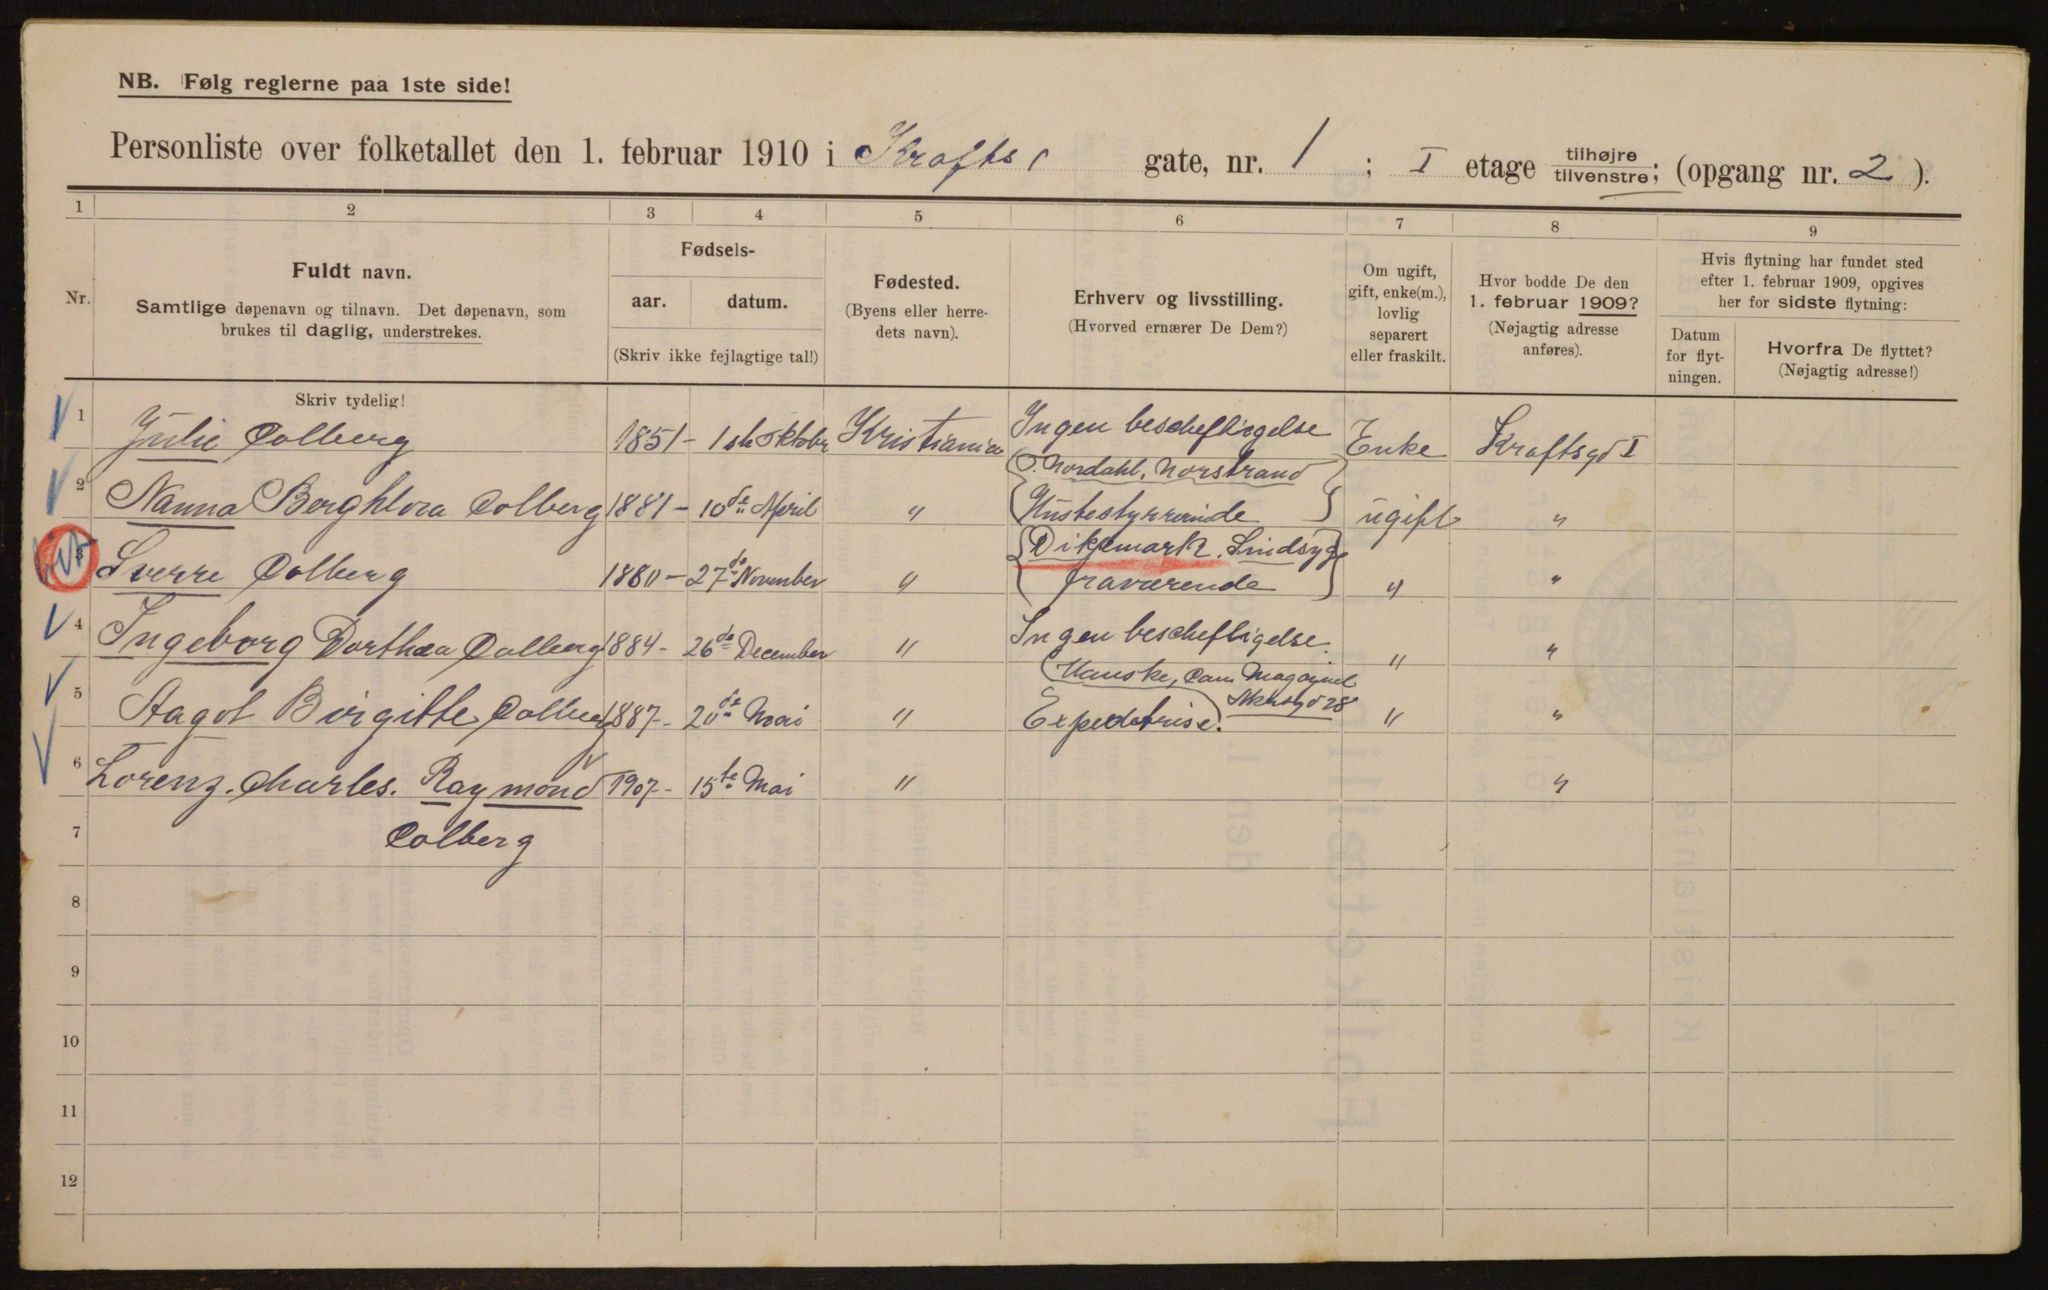 NB. Følg reglerne paa 1ste side!
Personliste over folketallet den 1. februar 1910 i Krafts gate, nr. 1 ; I etage tilhøjre tilvenstre; (opgang nr. 2 ).
1 2 3 4 5 6 7 8 9
Nr.
Fuldt navn.
Samtlige døpenavn og tilnavn. Det døpenavn, som
brukes til daglig, understrekes.
Fødsels-
aar. datum.
(Skriv ikke fejlagtige tal!)
Fødested.
(Byens eller herre-
dets navn).
Erhverv og livsstilling.
(Hvorved ernærer De Dem?)
Om ugift,
gift, enke(m.),
lovlig
separert
eller fraskilt.
Hvor bodde De den
1. februar 1909?
(Nøjagtig adresse
anføres).
Hvis flytning har fundet sted
efter 1. februar 1909, opgives
her for sidste flytning:
Datum
for flyt-
ningen.
Hvorfra De flyttet?
(Nøjagtig adresse!)
Skriv tydelig!
1 Julie Colberg 1851 - 1ste Oktober Kristiania Ingen bescheftigelse Enke Kraftsgd I
Nordahl, Norstrand
2 Nanna Borghlora Colberg 1881 - 10de April " Hustestyrrende ugift "
Dikemark. Sindsyg
3 Sverre Colberg 1880 - 27de November " fraværende " "
4 Ingeborg Dorthea Colberg 1884 - 26de December " Ingen bescheftigelse. " "
Hanske, Dam Magasinet
5 Aagot Birgitte Colberg 1887 - 20de Mai " Expeditrise. " "
6 Lorenz. Charles. Raymond 1907 - 15te Mai " "
7 Colberg
8
9
10
11
12